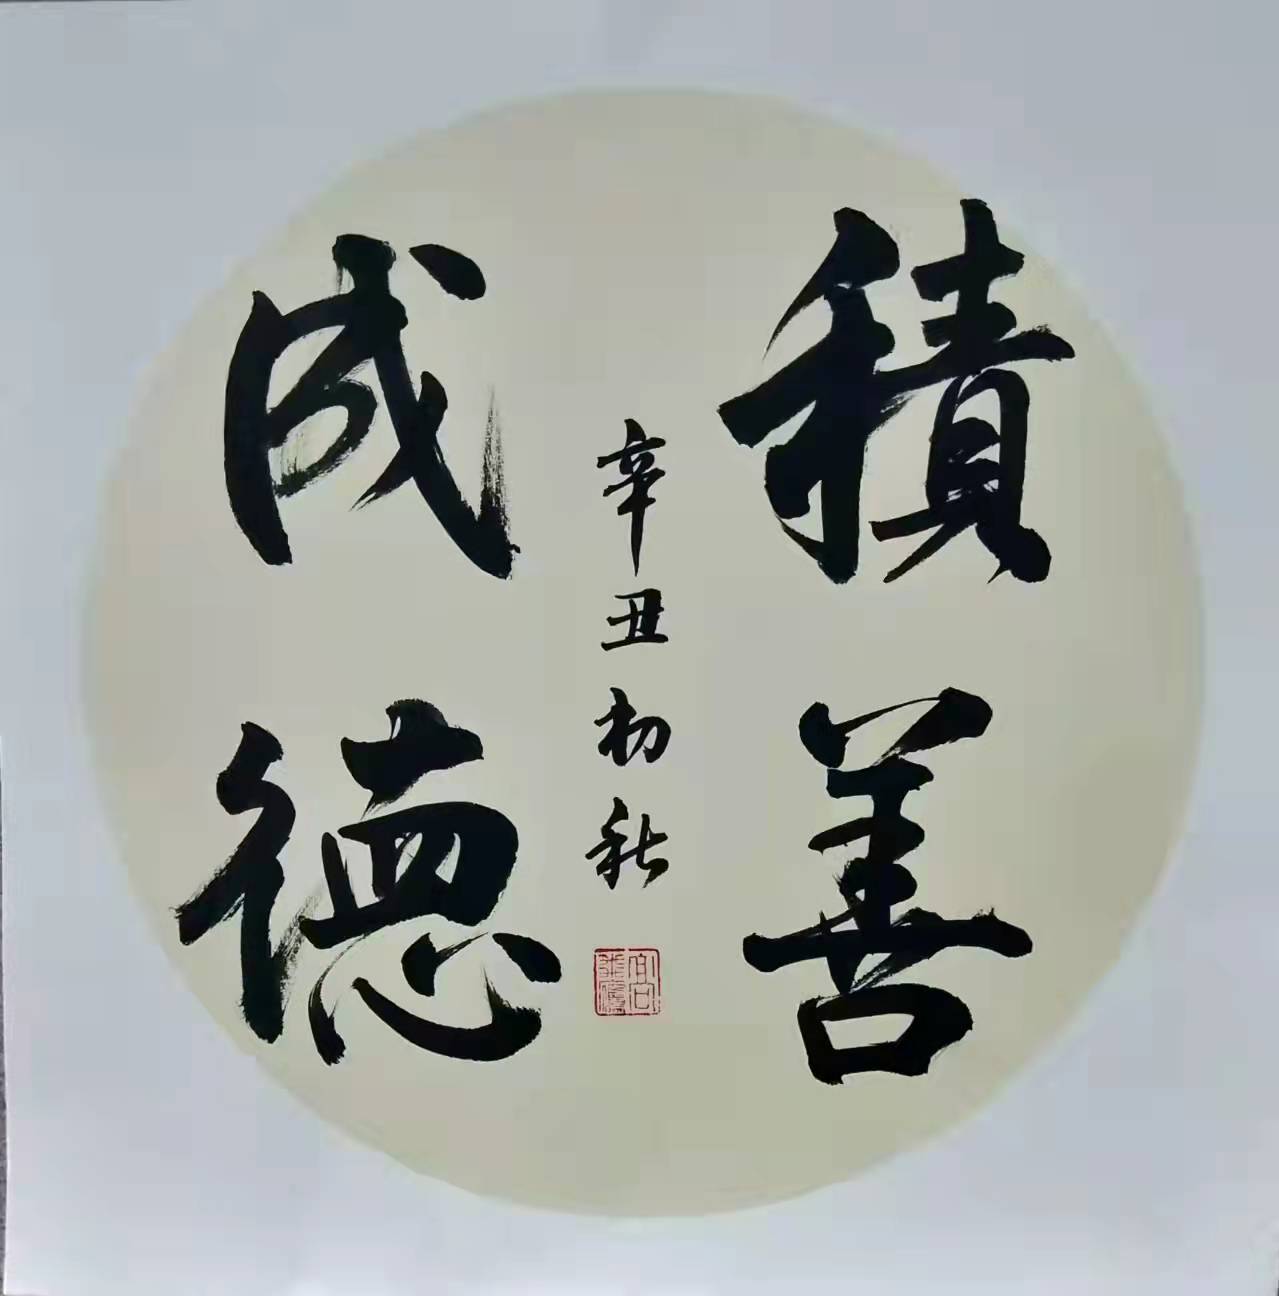 積善
成德
辛丑初秋